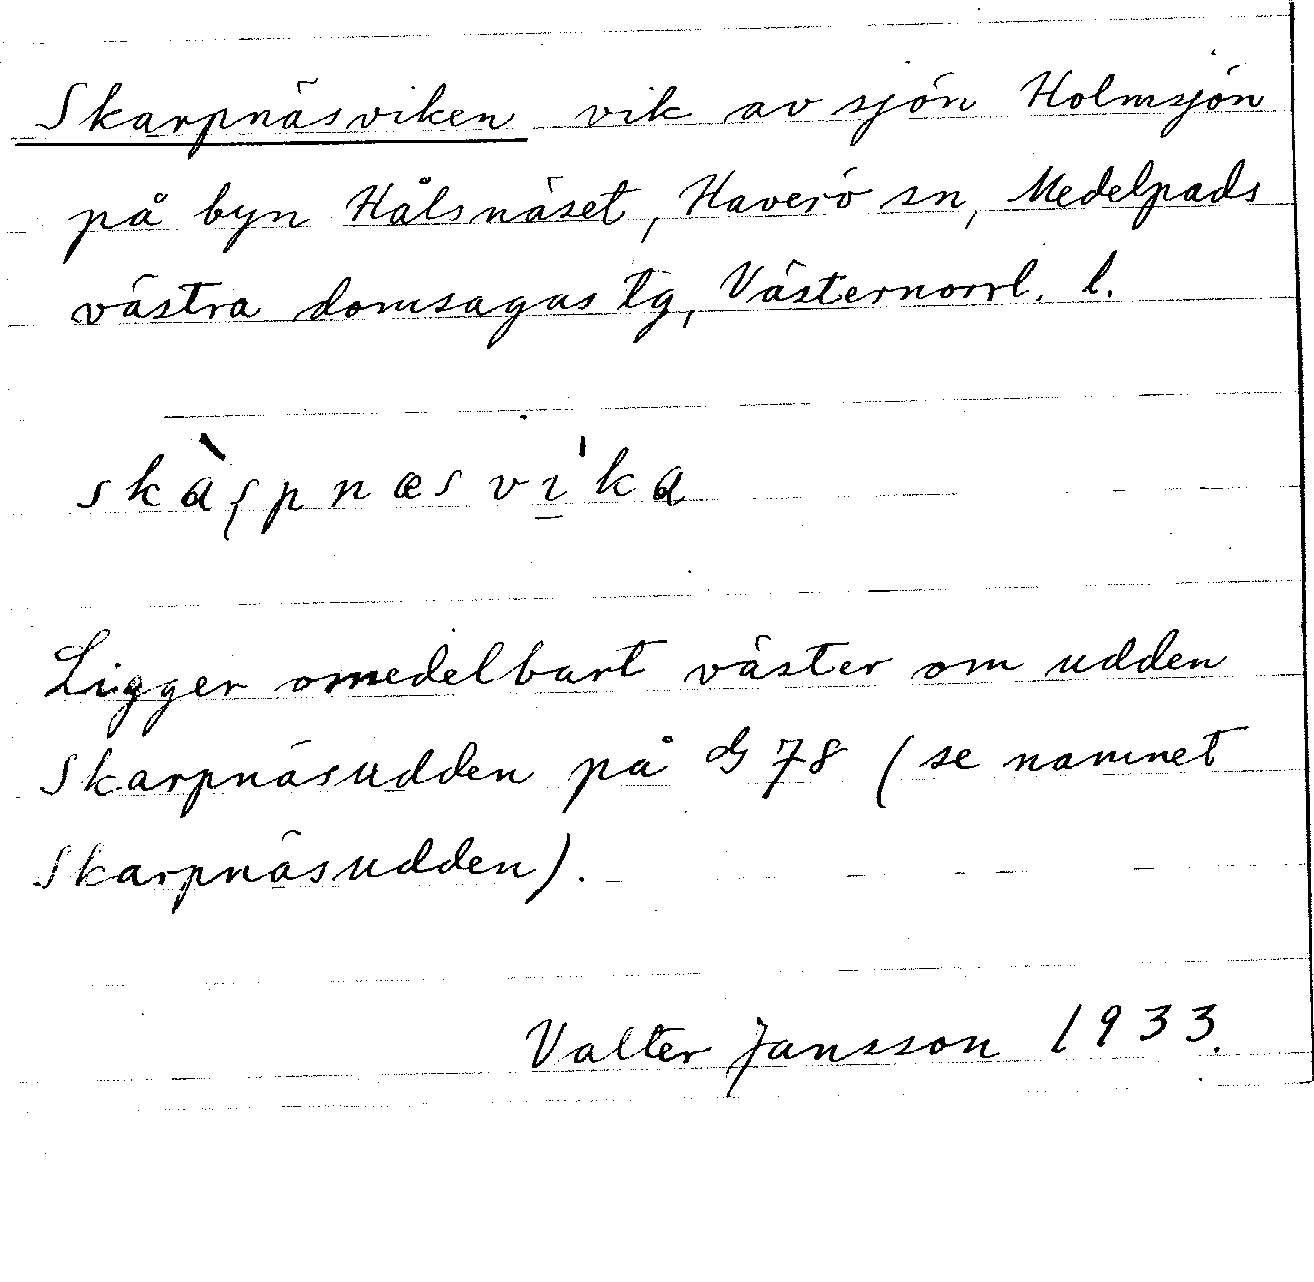 Skarpnäsviken vik av sjön Holmsjön
på byn Hålsnäset, Haverö sn, Medelpads
västra domsagas tg, Västernorrl. l.
skàʂpnæsvi̠'ka
Ligger omedelbart väster om udden
Skarpnäsudden på G 78 (se namnet
Skarpnäsudden).
Valter Jansson 1933.